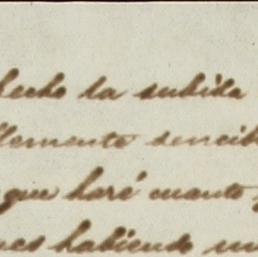 hecho la subida
lemente sencib
que haré cuanto
nes habiendo un